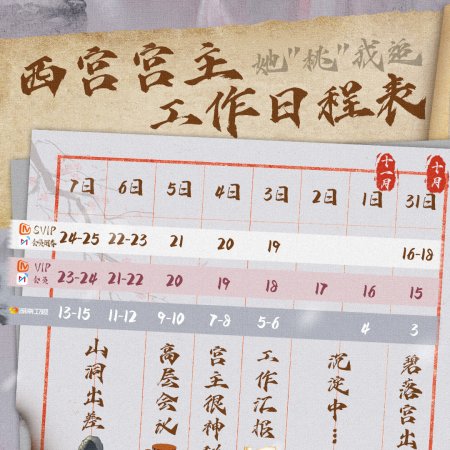 西宫宫主
她"桃"我逃
工作日程表
十一月
十月
7日 6日 5日 4日 3日 2日 1日 31日
SVIP 24-25 22-23 21 20 19 16-18
VIP 会员 23-24 21-22 20 19 18 17 16 15
13-15 11-12 9-10 7-8 5-6 4 3
山洞出差
高层会议
宫主很神秘
工作汇报
沉淀中…
碧落宫出